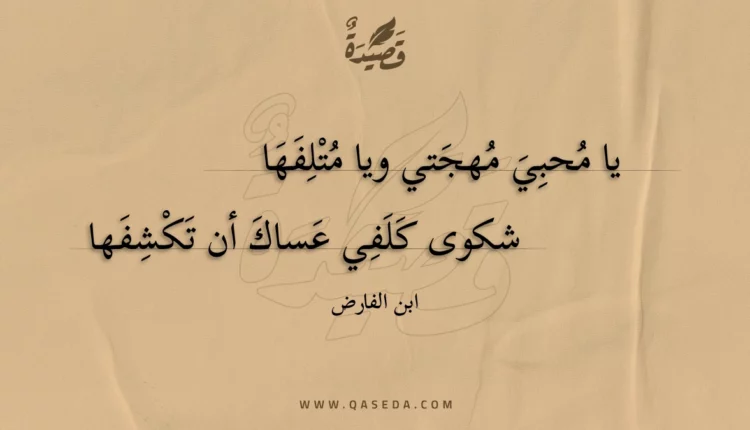 قَصِيدَةٌ
يا مُحبِيَ مُهجَتي ويا مُتْلِفَهَا
شكوى كَلَفِي عَساكَ أن تَكْشِفَها
ابن الفارض
WWW.QASEDA.COM